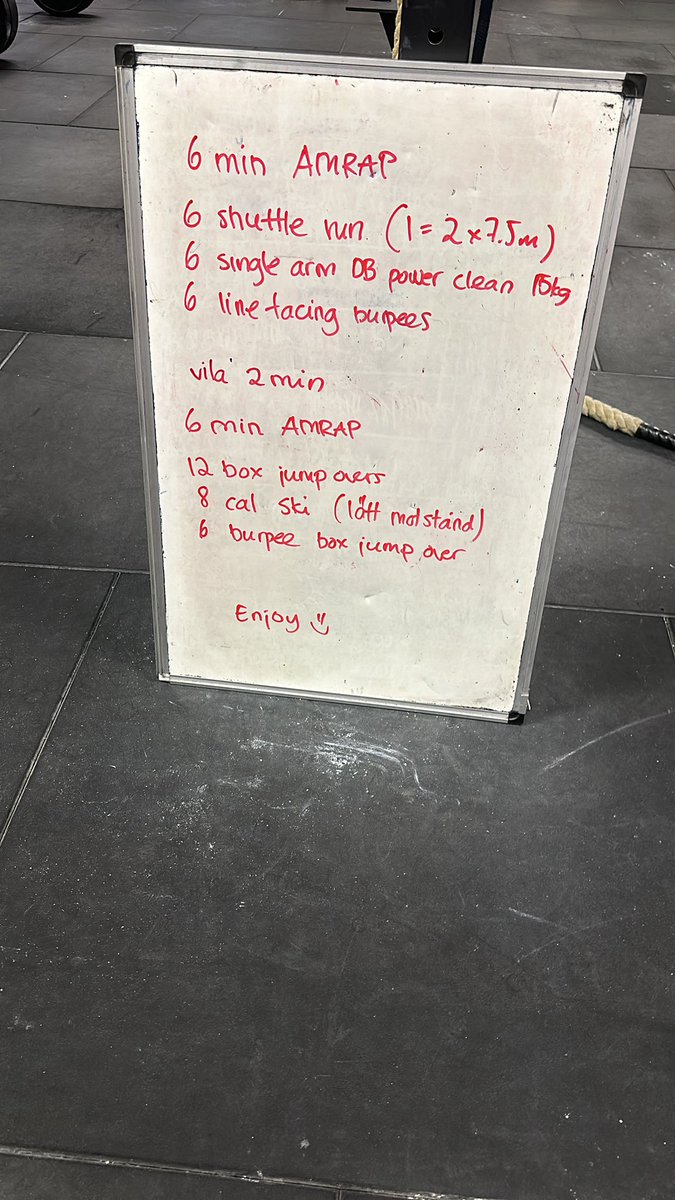 6 min AMRAP
6 shuttle run (1 = 2 x 7.5m)
6 single arm DB power clean 15kg
6 line facing burpees
vila 2 min
6 min AMRAP
12 box jump overs
8 cal ski (lätt motstånd)
6 burpee box jump over
Enjoy